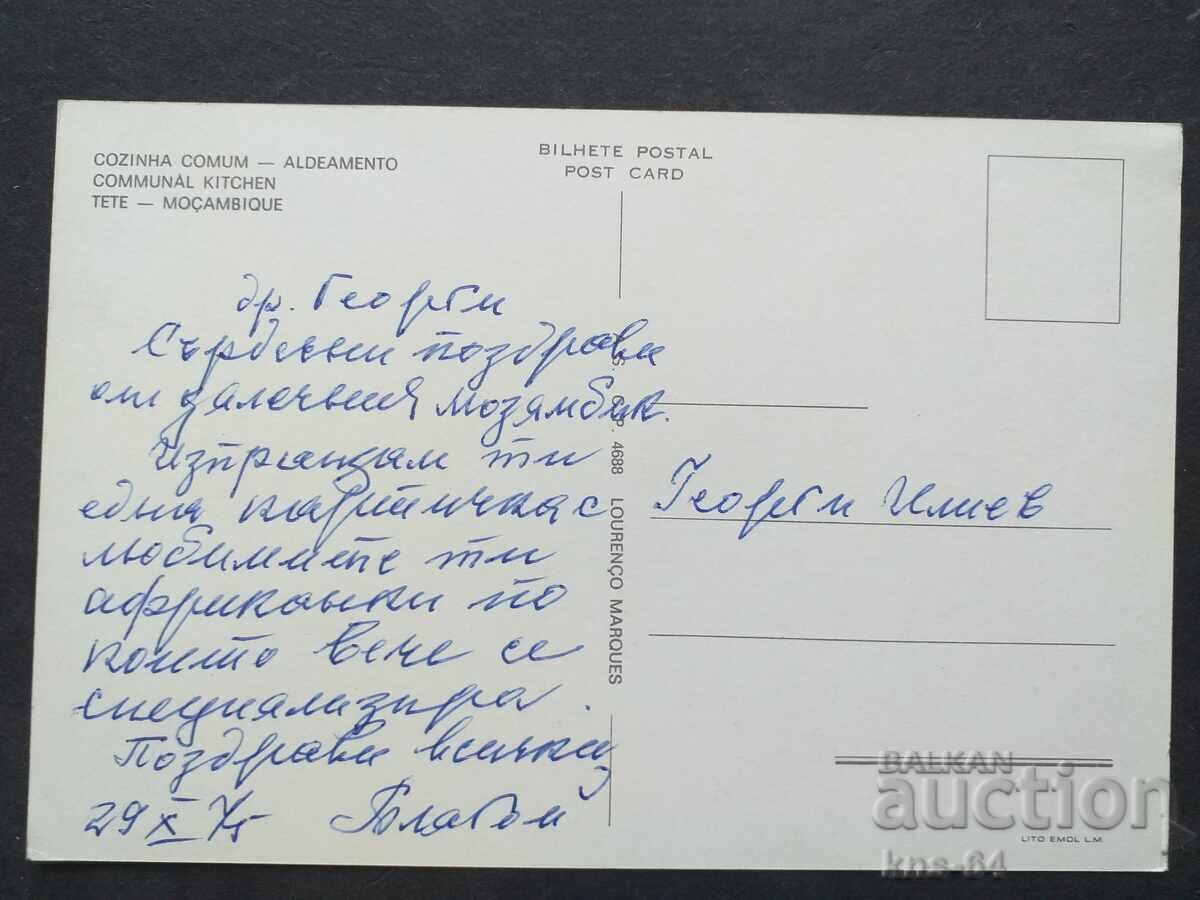 COZINHA COMUM — ALDEAMENTO
COMMUNAL KITCHEN
TETE — MOÇAMBIQUE
BILHETE POSTAL
POST CARD
др. Георги
Сърдечни поздрави
от далечния Мозамбик.
Изпращам ти
една картичка с
любимите ти
африканки по
които вече се
специализира.
Поздрави всички
29 X 75 Благой
C. P. 4688 LOURENÇO MARQUES
Георги Илиев
LITO EMDL L.M.
BALKAN
auction
kns-64